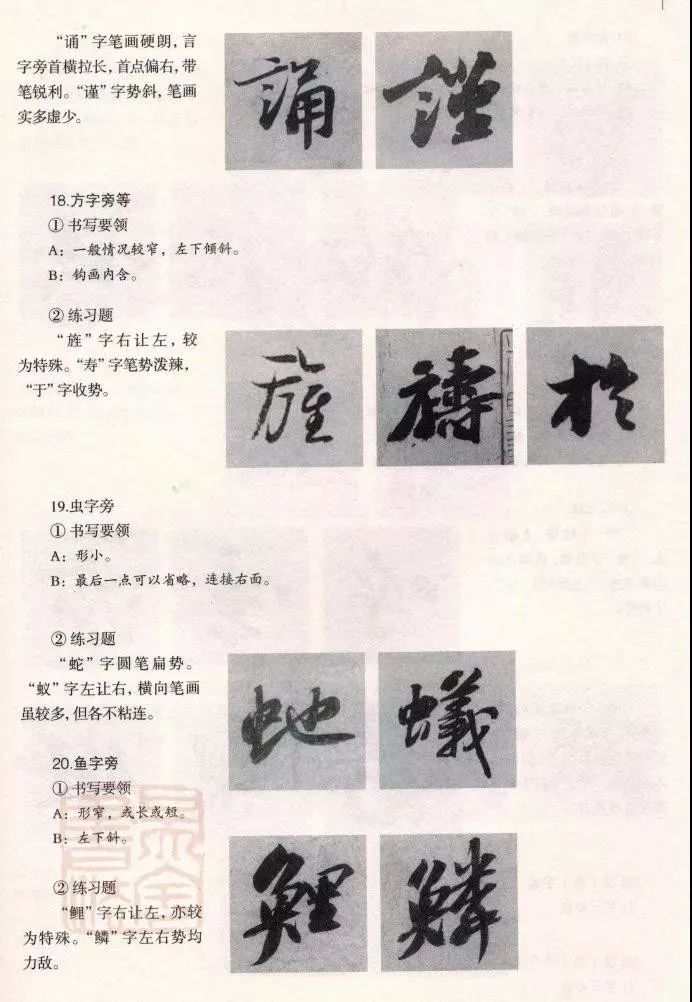 “诵”字笔画硬朗，言
字旁首横拉长，首点偏右，带
笔锐利。“谨”字势斜，笔画
实多虚少。
誦 謹
18.方字旁等
① 书写要领
A：一般情况较窄，左下倾斜。
B：钩画内含。
② 练习题
“旌”字右让左，较
为特殊。“寿”字笔势泼辣，
“于”字收势。
於
19.虫字旁
① 书写要领
A：形小。
B：最后一点可以省略，连接右面。
② 练习题
“蛇”字圆笔扁势。
“蚁”字左让右，横向笔画
虽较多，但各不粘连。
虵 蟻
20.鱼字旁
① 书写要领
A：形窄，或长或短。
B：左下斜。
② 练习题
“鲤”字右让左，亦较
为特殊。“鳞”字左右势均
力敌。
鯉 鱗